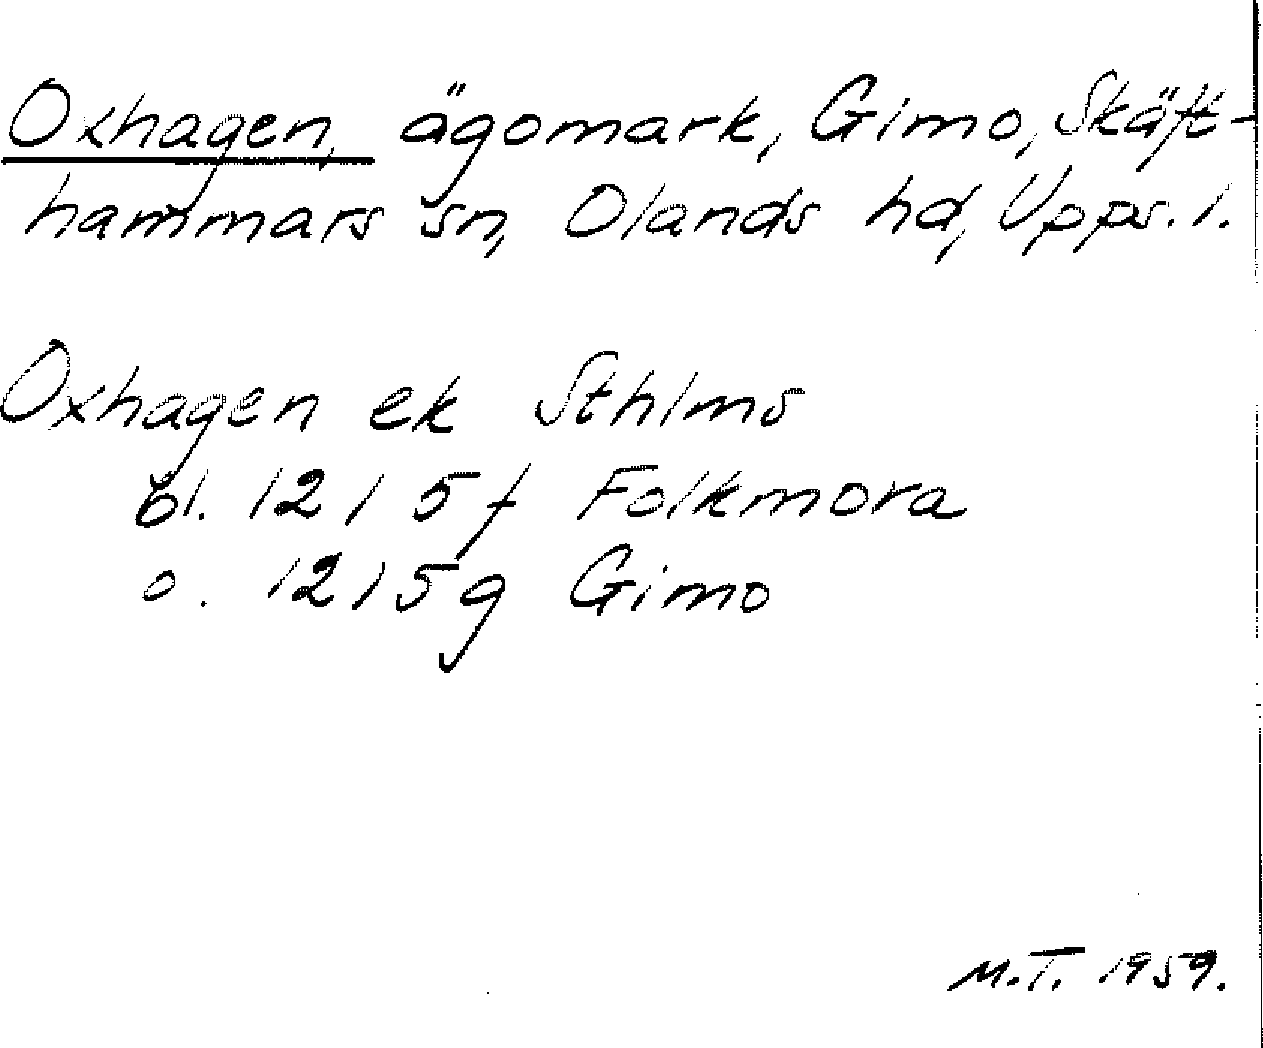 Oxhagen, ägomark, Gimo, Skäft-
hammars sn, Olands hd, Upps. l.
Oxhagen ek Sthlms
bl. 12 I 5f Folkmora
o. 12 I 5g Gimo
M.T. 1959.